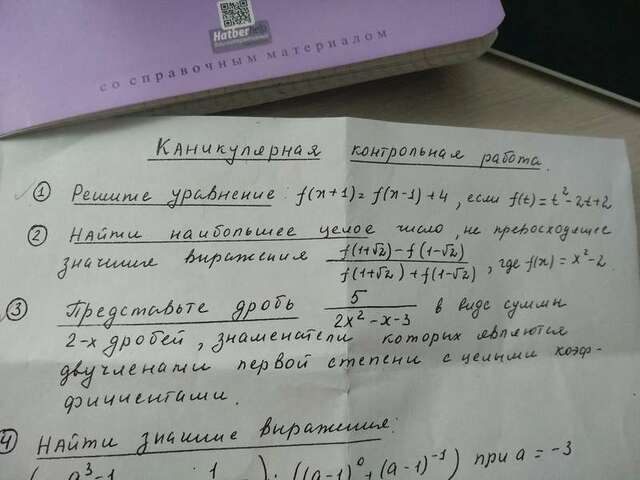 Hatber
со справочным материалом
Каникулярная контрольная работа.
① Решите уравнение: f(x+1) = f(x-1) + 4, если f(t) = t² - 2t + 2
② Найти наибольшее целое число, не превосходящее
значение выражения (f(1+√2) - f(1-√2)) / (f(1+√2) + f(1-√2)), где f(x) = x² - 2.
③ Представьте дробь 5 / (2x² - x - 3) в виде суммы
2-х дробей, знаменатели которых являются
двучленами первой степени с целыми коэф-
фициентами.
④ Найти значение выражения:
( a³-1 1 ) : ((a-1)⁰ + (a-1)⁻¹) при a = -3